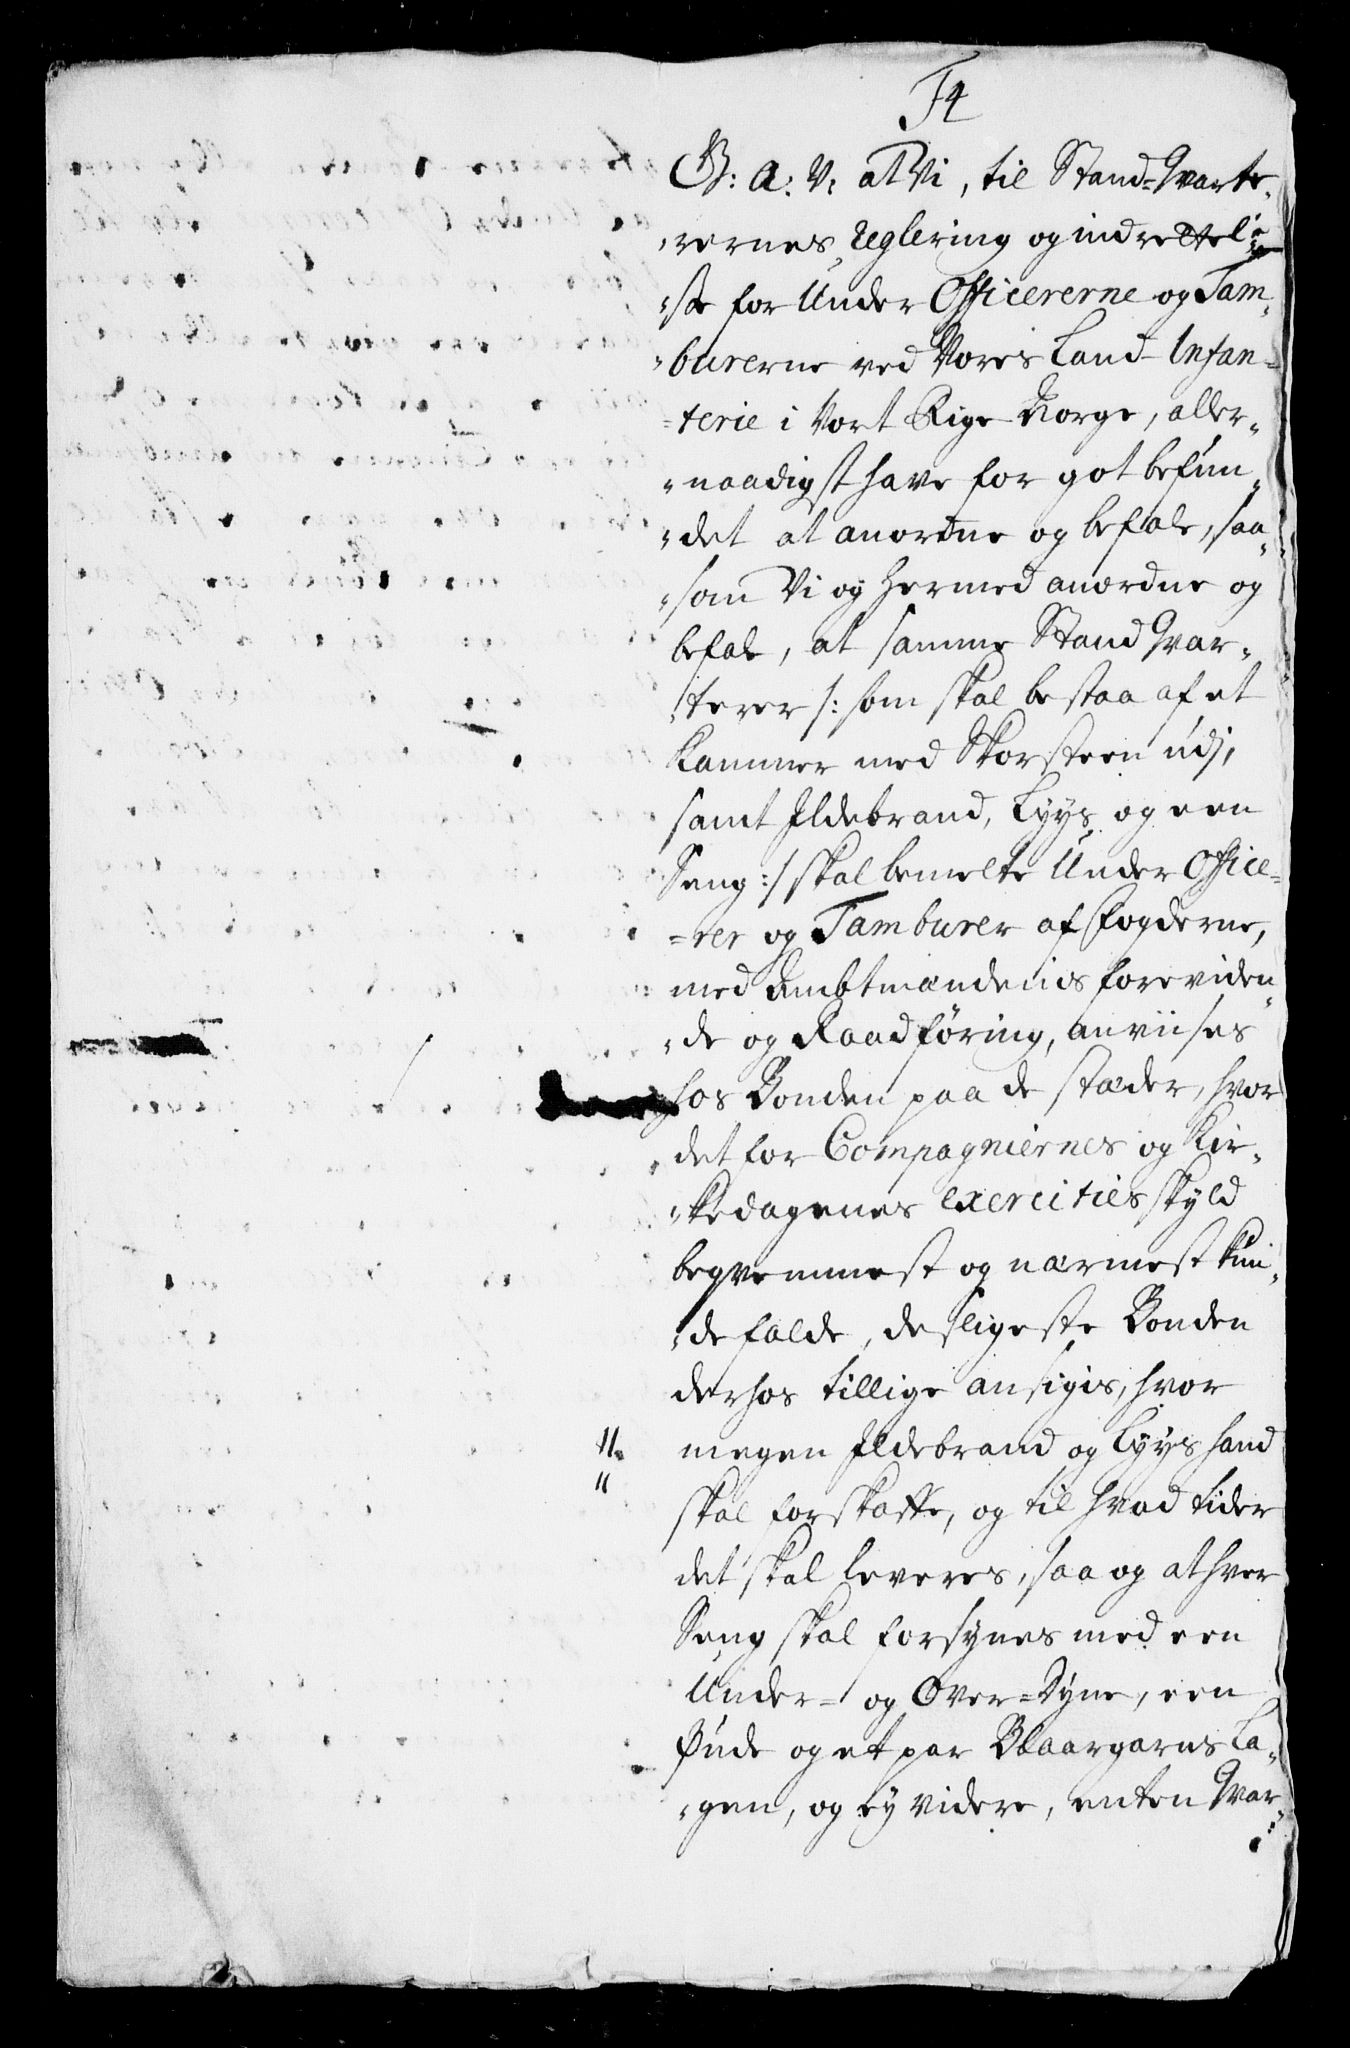 F4
G: A: V: at Vi, til Stand-Qvarte-
rernes reglering og indrettel-
se for Under Officererne og Tam-
burerne ved Vores Land-Infan-
terie i Vort Rige Norge, aller-
naadigst have for got befun-
det at anordne og befale, saa-
som Vi og hermed anordne og
befale, at samme Stand Qvar-
terer /: som skal bestaa af et
Kammer med Skorsteen udj,
samt Ildebrand, Lyys og een
Seng :/ skal bemelte Under Office-
rer og Tamburer af Fogderne,
med Ambtmændenis foreviden-
de og Raadføring, anviises
hos Bonden paa de stæder, hvor
det for Compagniernes og Kir-
kedagenes exercities skyld
beqvemmest og nærmest kun-
de falde, desligeste Bonden
derhos tillige ansigis, hvor
megen Ildebrand og Lyys hand
skal forskaffe, og til hvad tider
det skal leveres, saa og at hver
Seng skal forsynes med een
Under- og Over-Dyne, een
Pude og et par Blaargarns La-
gen, og ey videre, enten Qvar-